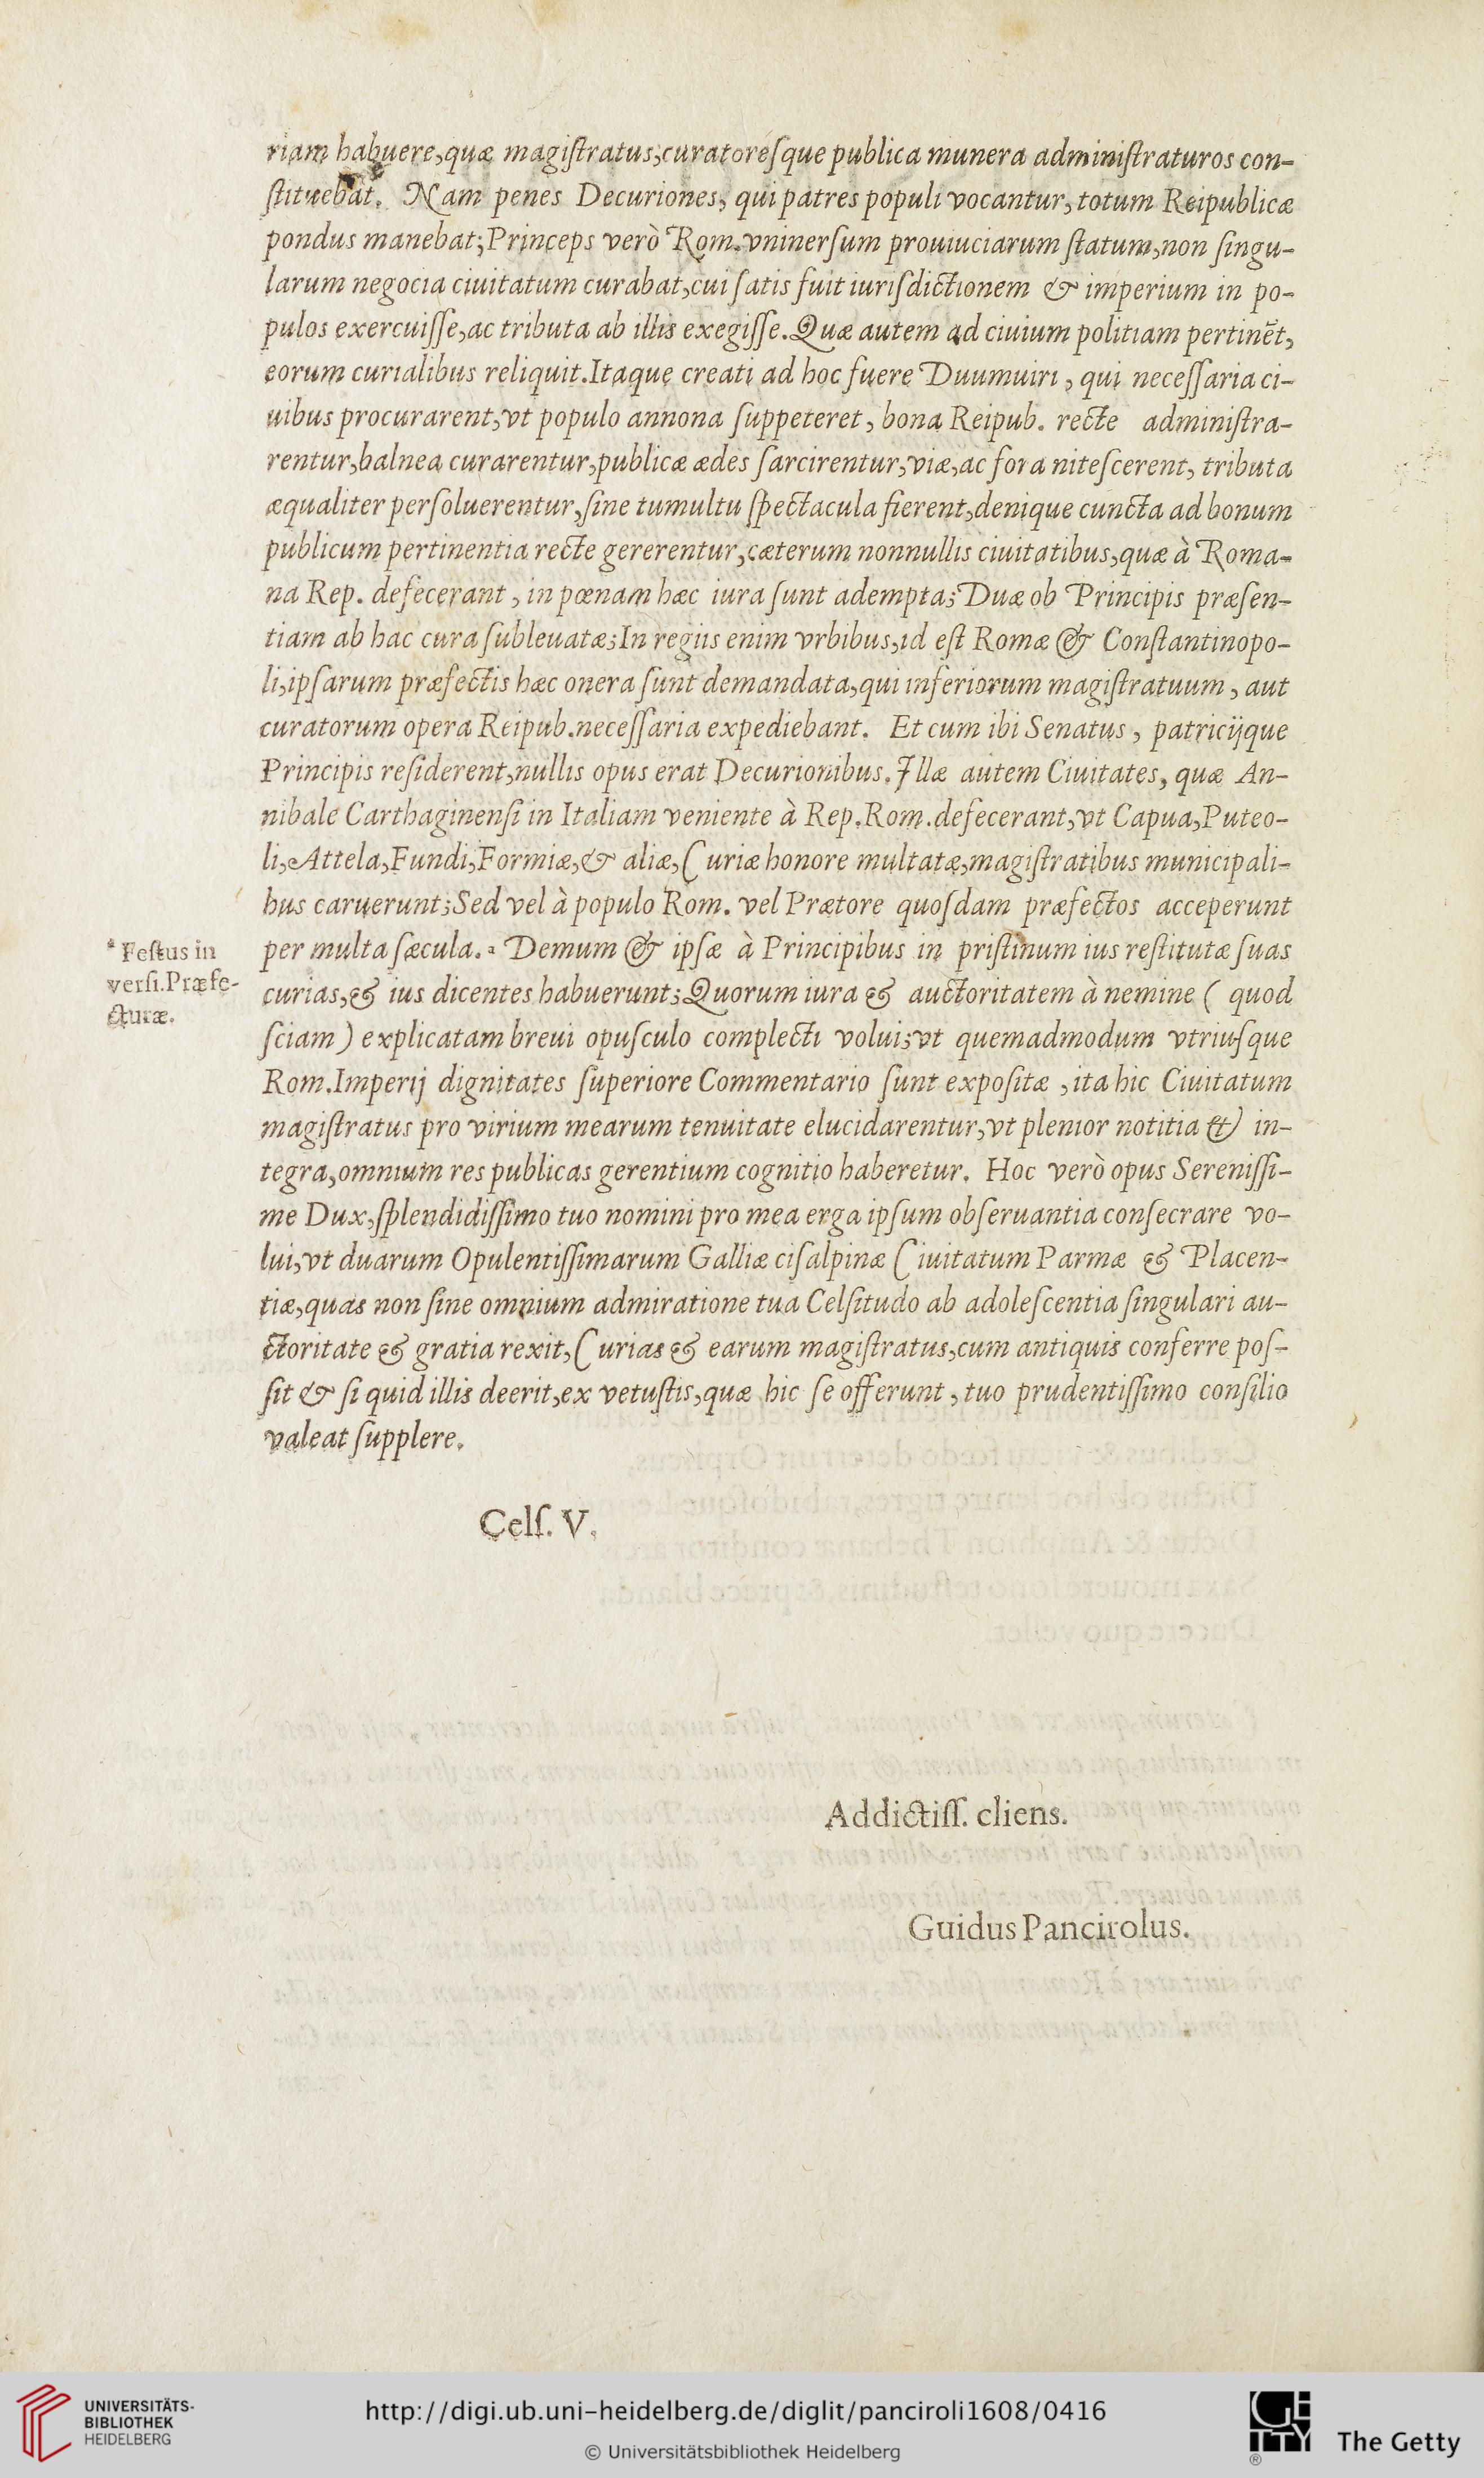 riam habuere,quæ magiſtratus,curatoréſque publica munera adminiſtraturos con-
ſtituebāt. Nam penes Decuriones, qui patres populi vocantur, totum Reipublicæ
pondus manebat; Princeps verò Rom. vninerſum prouiuciarum ſtatum, non ſingu-
larum negocia ciuitatum curabat, cui ſatis fuit iuriſdictionem & imperium in po-
pulos exercuiſſe, ac tributa ab illis exegiſſe. Quæ autem ad ciuium politiam pertinēt,
eorum curialibus reliquit. Itaque creati ad hoc fuere Duumuiri, qui neceſſaria ci-
uibus procurarent, vt populo annona ſuppeteret, bona Reipub. recte adminiſtra-
rentur, balnea curarentur, publicæ ædes ſarcirentur, viæ, ac fora niteſcerent, tributa
æqualiter perſoluerentur, ſine tumultu ſpectacula fierent, denique cuncta ad bonum
publicum pertinentia recte gererentur, cæterum nonnullis ciuitatibus, quæ à Roma-
na Rep. defecerant, in pœnam hæc iura ſunt adempta; Duæ ob Principis præſen-
tiam ab hac cura ſubleuatæ; In regiis enim vrbibus, id eſt Romæ & Conſtantinopo-
li, ipſarum præfectis hæc onera ſunt demandata, qui inferiorum magiſtratuum, aut
curatorum opera Reipub. neceſſaria expediebant. Et cum ibi Senatus, patricijque
Principis reſiderent, nullis opus erat Decurionibus. Illæ autem Ciuitates, quæ An-
nibale Carthaginenſi in Italiam veniente à Rep. Rom. defecerant, vt Capua, Puteo-
li, Attela, Fundi, Formiæ, & aliæ, Curiæ honore multatæ, magiſtratibus municipali-
bus caruerunt; Sed vel à populo Rom. vel Prætore quoſdam præfectos acceperunt
per multa ſæcula. ª Demum & ipſæ à Principibus in priſtinum ius reſtitutæ ſuas
curias, & ius dicentes habuerunt; Quorum iura & auctoritatem à nemine ( quod
ſciam ) explicatam breui opuſculo complecti volui; vt quemadmodum vtriuſque
Rom. Imperij dignitates ſuperiore Commentario ſunt expoſitæ, ita hic Ciuitatum
magiſtratus pro virium mearum tenuitate elucidarentur, vt plenior notitia & in-
tegra, omnium res publicas gerentium cognitio haberetur. Hoc verò opus Sereniſſi-
me Dux, ſplendidiſſimo tuo nomini pro mea erga ipſum obſeruantia conſecrare vo-
lui, vt duarum Opulentiſſimarum Galliæ ciſalpinæ Ciuitatum Parmæ & Placen-
tiæ, quas non ſine omnium admiratione tua Celſitudo ab adoleſcentia ſingulari au-
ctoritate & gratia rexit, Curias & earum magiſtratus, cum antiquis conferre poſ-
ſit & ſi quid illis deerit, ex vetuſtis, quæ hic ſe offerunt, tuo prudentiſſimo conſilio
valeat ſupplere.
ª Feſtus in
verſi. Præfe-
cturæ.
Celſ. V.
Addictiſſ. cliens.
Guidus Pancirolus.
UNIVERSITÄTS-
BIBLIOTHEK
HEIDELBERG
http://digi.ub.uni-heidelberg.de/diglit/panciroli1608/0416
© Universitätsbibliothek Heidelberg
GETTY
®
The Getty